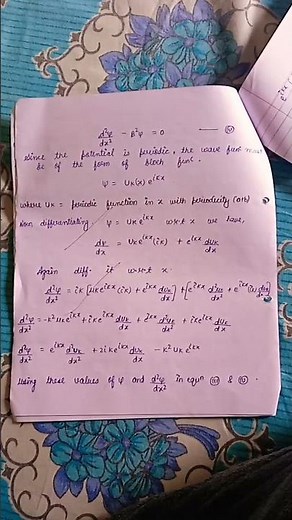 d²ψ/dx² - β²ψ = 0 — (IV)
Since the potential is periodic, the wave func must
be of the form of bloch func.
ψ = Uk(x) e^ikx
where Uk = periodic function in x with periodicity (a+b)
differentiating ψ = Uk e^ikx w.r.t x we have,
dψ/dx = Uk e^ikx (ik) + e^ikx dUk/dx
Again diff. it w.r.t x
d²ψ/dx² = ik [Uk e^ikx (ik) + e^ikx dUk/dx] + [e^ikx d²Uk/dx² + e^ikx (ik) dUk/dx]
d²ψ/dx² = -k² Uk e^ikx + ik e^ikx dUk/dx + e^ikx d²Uk/dx² + ik e^ikx dUk/dx
d²ψ/dx² = e^ikx d²Uk/dx² + 2ik e^ikx dUk/dx - k² Uk e^ikx
Using these values of ψ and d²ψ/dx² in eqn (III) & (IV).
e^ikx